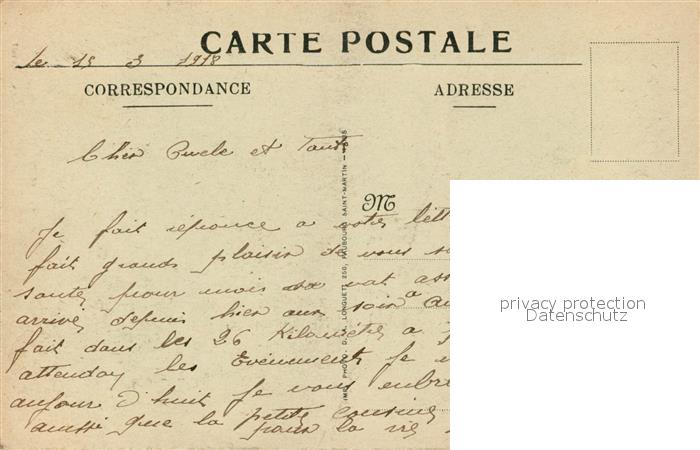 CARTE POSTALE
le 15 3 1918
CORRESPONDANCE
ADRESSE
Cher Oncle et Tant
M
Je fait réponce a votre lett
fait grands plaisir de vous
santé, pour mois sa vat ass
arrivé, depuis hier aux soir a au
fait dans les 26 Kilomètre a
attenday les Evénements Je
aujour d huit Je vous enbr
aussi que la petite cousine
pour la vie
IMP. PHOTO. D. A. LONGUET, 250, FAUBOURG SAINT-MARTIN
privacy protection
Datenschutz